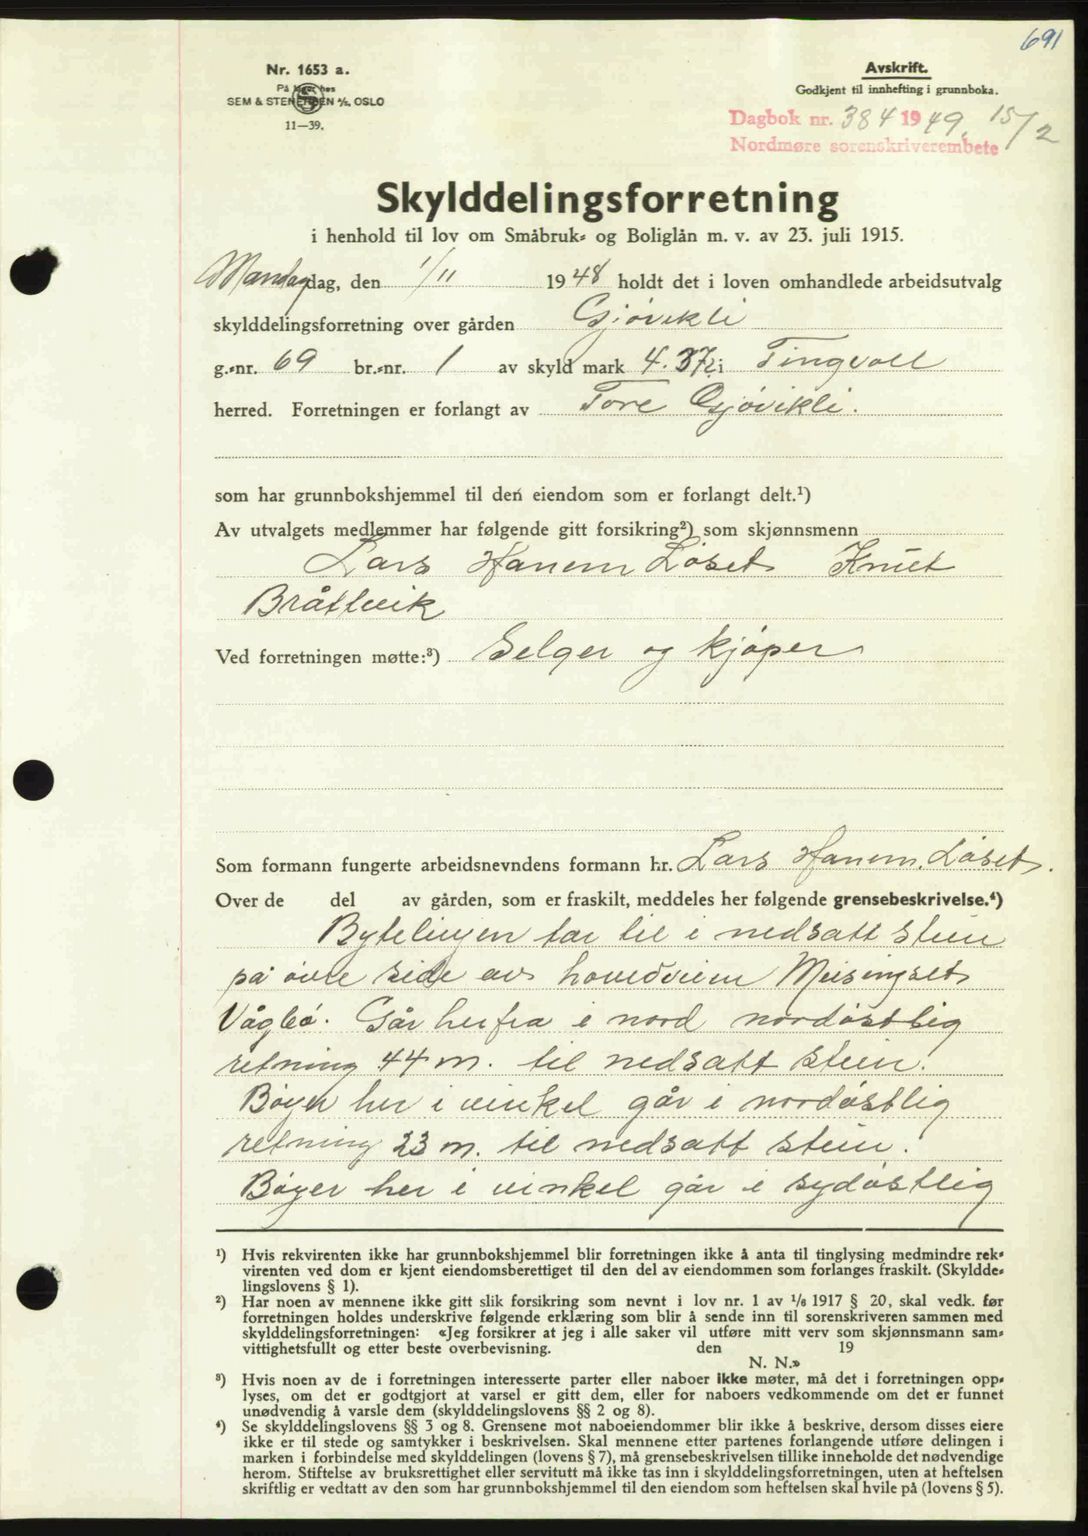 691
Nr. 1653 a.
På lager hos
SEM & STENERSEN A/S, OSLO
11—39.
Avskrift.
Godkjent til innhefting i grunnboka.
Dagbok nr. 384 1949. 15/2
Nordmøre sorenskriverembete
Skylddelingsforretning
i henhold til lov om Småbruk- og Boliglån m. v. av 23. juli 1915.
Mandag dag, den 1/11 1948 holdt det i loven omhandlede arbeidsutvalg
skylddelingsforretning over gården Gjøvikli
g.-nr. 69 br.-nr. 1 av skyld mark 4.37 i Tingvoll
herred. Forretningen er forlangt av Tore Gjøvikli.
som har grunnbokshjemmel til den eiendom som er forlangt delt.¹)
Av utvalgets medlemmer har følgende gitt forsikring²) som skjønnsmenn
Lars Hanem Løset Knut
Bråtvik
Ved forretningen møtte:³) Selger og kjøper
Som formann fungerte arbeidsnevndens formann hr. Lars Hanem Løset.
Over de del av gården, som er fraskilt, meddeles her følgende grensebeskrivelse.⁴)
Bytelinjen tar til i nedsatt stein
på øvre side av hovedveien Meisingset
Vågbø. Går herfra i nord nordøstlig
retning 44 m. til nedsatt stein.
Bøyer her i vinkel går i nordøstlig
retning 23 m. til nedsatt stein.
Bøyer her i vinkel går i sydøstlig
¹) Hvis rekvirenten ikke har grunnbokshjemmel blir forretningen ikke å anta til tinglysing medmindre rek-
virenten ved dom er kjent eiendomsberettiget til den del av eiendommen som forlanges fraskilt. (Skyldde-
lingslovens § 1).
²) Har noen av mennene ikke gitt slik forsikring som nevnt i lov nr. 1 av 1/6 1917 § 20, skal vedk. før
forretningen holdes underskrive følgende erklæring som blir å sende inn til sorenskriveren sammen med
skylddelingsforretningen: «Jeg forsikrer at jeg i alle saker vil utføre mitt verv som skjønnsmann sam-
vittighetsfullt og etter beste overbevisning. den 19
N. N.»
³) Hvis noen av de i forretningen interesserte parter eller naboer ikke møter, må det i forretningen opp-
lyses, om det er godtgjort at varsel er gitt dem, eller for naboers vedkommende om det er funnet
unødvendig å varsle dem (skylddelingslovens §§ 2 og 8).
⁴) Se skylddelingslovens §§ 3 og 8. Grensene mot naboeiendommer blir ikke å beskrive, dersom disses eiere
ikke er til stede og samtykker i beskrivelsen. Skal mennene etter partenes forlangende utføre delingen i
marken i forbindelse med skylddelingen (lovens § 7), må grensebeskrivelsen tillike inneholde det nødvendige
herom. Stiftelse av bruksrettighet eller servitutt må ikke tas inn i skylddelingsforretningen, uten at heftelsen
skriftlig er vedtatt av den som har grunnbokshjemmel til den eiendom som heftelsen skal hvile på (lovens § 5).